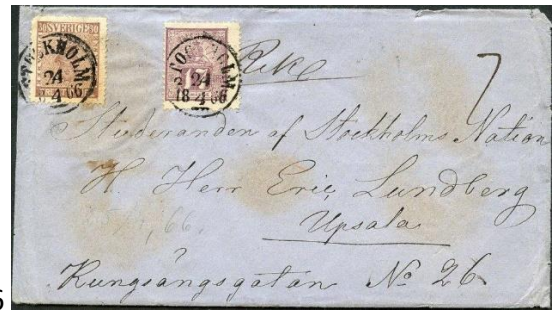 30 SVERIGE 30
STOCKHOLM
24
4 66
STOCKHOLM
24
18 4 66
17
Rek
7
Studeranden af Stockholms Nation
H. Herr Eric Lundberg
Upsala
66.
?
Kungsängsgatan No 26
6